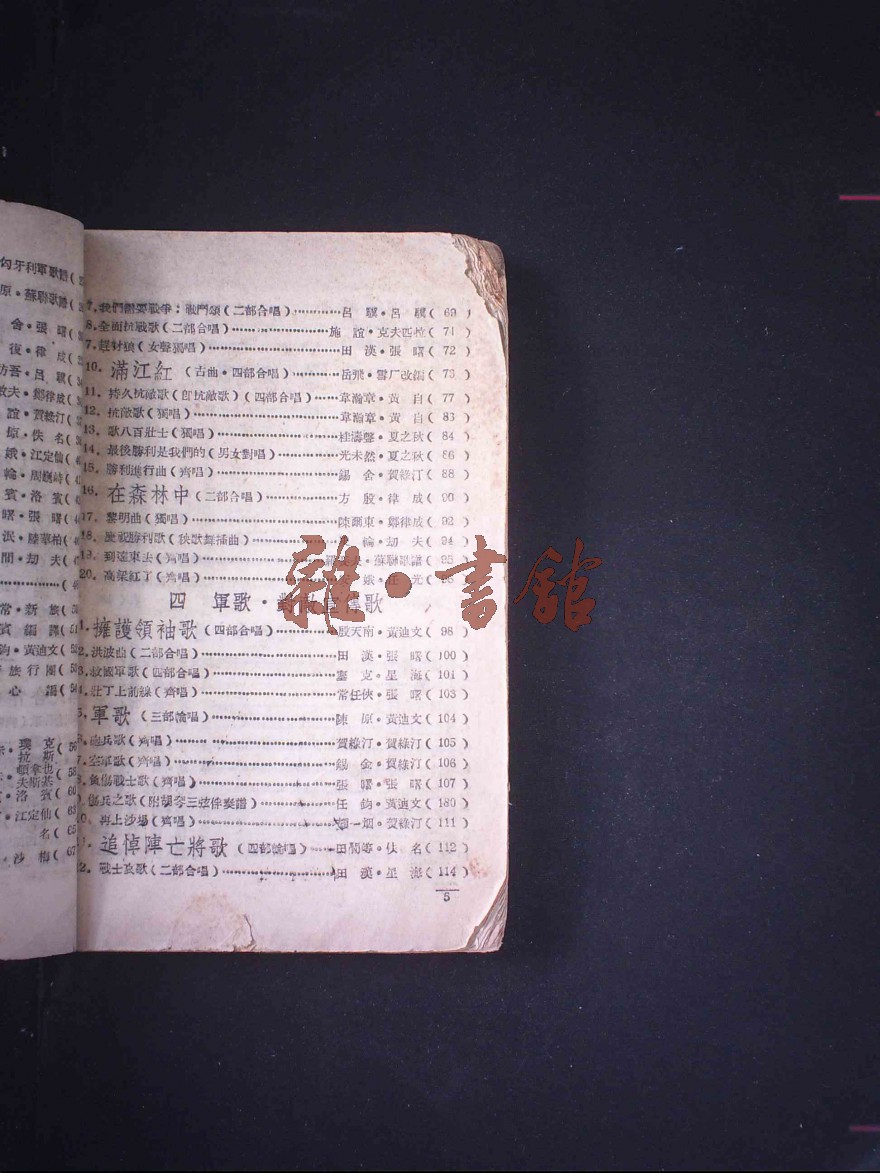 匈牙利軍歌譜(
原・蘇聯歌譜
舍・張 曙
復・律 成
吾・呂 驥
敦夫・鄭律成
誼・賀綠汀
原・佚 名
娥・江定仙
輪・周巍峙
賓・洛 賓
曙・張 曙
泯・陸華柏
間・劫 夫
常・新 族
賓 編 譯
鈞・黃迪文
族 行 團
心 錫
璞 克
拉 斯
頓拿也
夫斯基
洛 賓
江定仙
名
沙 梅
7.我們需要戰爭:戰鬥頌(二部合唱)…………呂 驥・呂 驥( 69 )
8.全面抗戰歌(二部合唱)…………施 誼・克夫匹拉( 71 )
7.趕豺狼(女聲獨唱)…………田 漢・張 曙( 72 )
10.滿江紅(古曲・四部合唱)…………岳飛・雪厂改編( 73 )
11.持久抗敵歌(卽抗敵歌)(四部合唱)…………韋瀚章・黃 自( 77 )
12.抗敵歌(獨唱)…………韋瀚章・黃 自( 83 )
13.歌八百壯士(獨唱)…………桂濤聲・夏之秋( 84 )
14.最後勝利是我們的(男女對唱)…………光未然・夏之秋( 86 )
15.勝利進行曲(齊唱)…………錫 舍・賀綠汀( 88 )
16.在森林中(二部合唱)…………方 殷・律 成( 90 )
17.黎明曲(獨唱)…………陳爾東・鄭律成( 92 )
18.慶戰勝利歌(秧歌舞插曲)…………輪・劫 夫( 94 )
19.到遠東去(齊唱)…………蘇聯歌譜( 95
20.高粱紅了(齊唱)…………娥・任 光
四 軍歌・對
歌
1.擁護領袖歌(四部合唱)…………殷天南・黃迪文( 98 )
2.洪波曲(二部合唱)…………田 漢・張 曙( 100 )
3.救國軍歌(四部合唱)…………塞 克・星 海( 101 )
4.壯丁上前線(齊唱)…………常任俠・張 曙( 103 )
5.軍歌(三部輪唱)…………陳 原・黃迪文( 104 )
6.炮兵歌(齊唱)…………賀綠汀・賀綠汀( 105 )
7.空軍歌(齊唱)…………錫 金・賀綠汀( 106 )
8.負傷戰士歌(齊唱)…………張 曙・張 曙( 107 )
9.傷兵之歌(附胡琴三弦伴奏譜)…………任 鈞・黃迪文( 180 )
10.再上沙場(齊唱)…………一烟・賀綠汀( 111 )
追悼陣亡將歌(四部輪唱)…………田間等・佚 名( 112 )
12.戰士哀歌(二部合唱)…………田 漢・星 海( 114 )
5
雜・書館